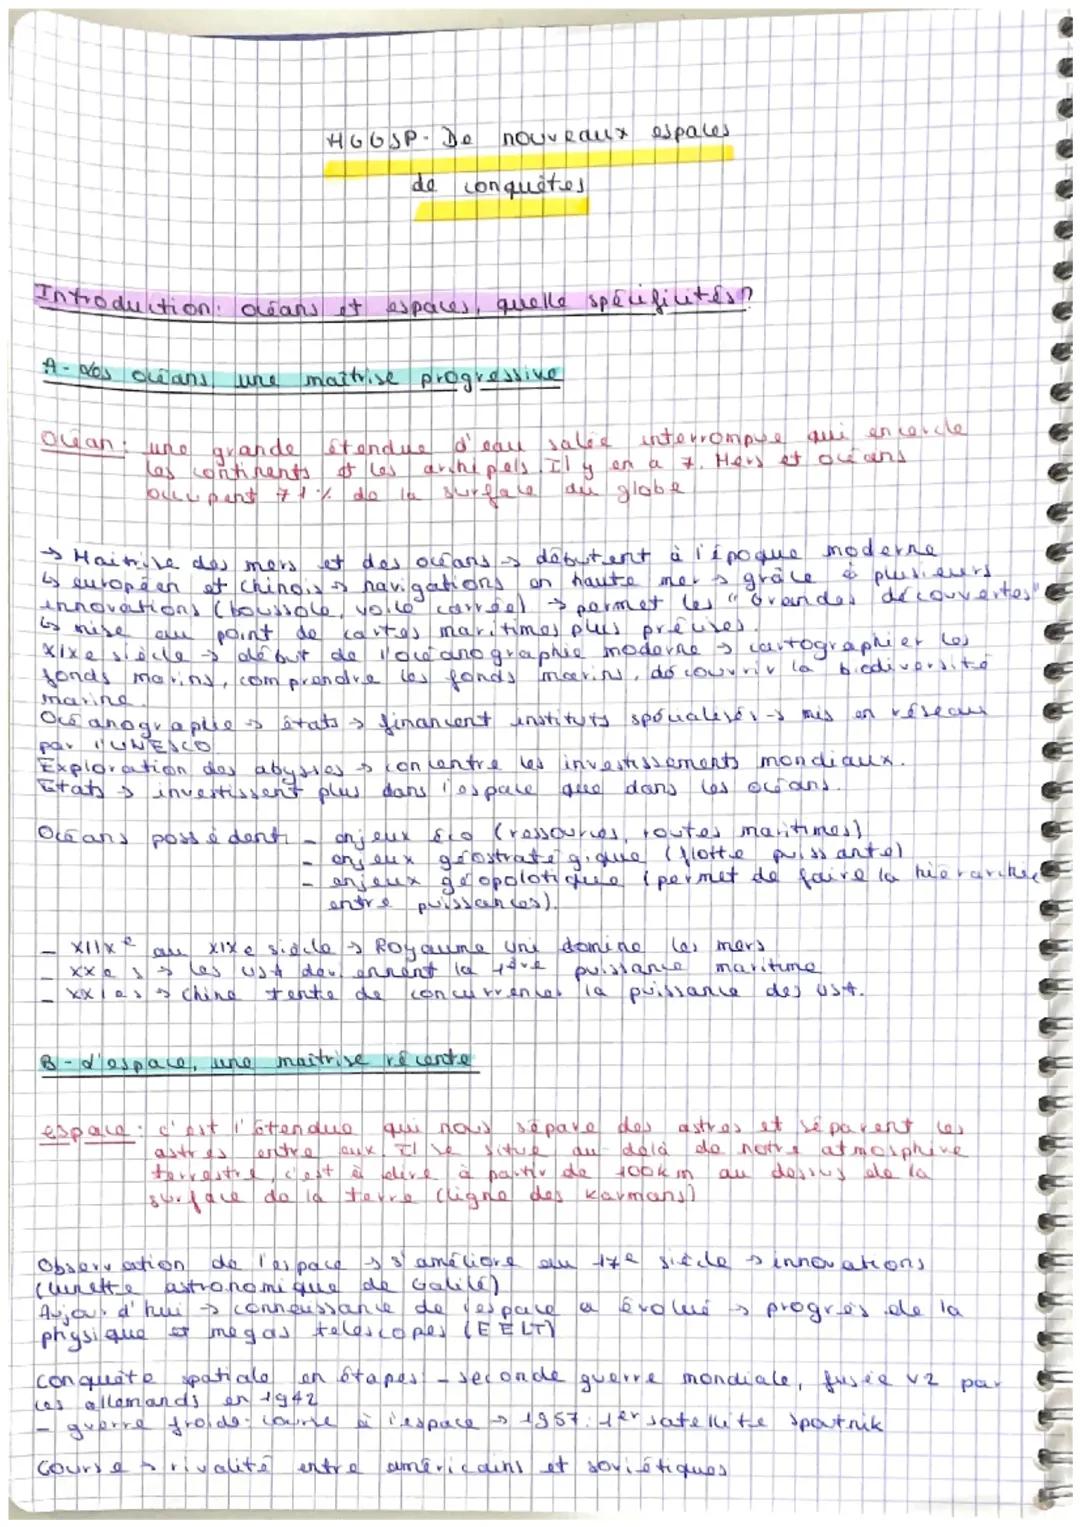 HGGSP - De nouveaux espaces
de conquêtes
Introduction: océans et espaces, quelle spécificités?
A - Les océans, une maîtrise progressive
Océan : une grande étendue d'eau salée interrompue qui encercle
les continents et les archipels. Il y en a 7. Mers et océans
occupent 71% de la surface du globe
→ Maitrise des mers et des océans → débutent à l'époque moderne
↳ européen et chinois → navigations en haute mer → grâce à plusieurs
innovations (boussole, voile carrée) → permet les "Grandes découvertes"
↳ mise au point de cartes maritimes plus précises.
XIXe siècle → début de l'océanographie moderne → cartographier les
fonds marins, comprendre les fonds marins, découvrir la biodiversité
marine.
Océanographie → états → financent instituts spécialisés → mis en réseau
par l'UNESCO
Exploration des abysses → concentre les investissements mondiaux.
États → investissent plus dans l'espace que dans les océans.
Océans possèdent - enjeux éco (ressources, routes maritimes)
- enjeux géostratégique (flotte puissante)
- enjeux géopolotique (permet de faire la hiérarchie
entre puissances).
- XIIXe au XIXe siècle → Royaume Uni domine les mers
- XXe s → les USA deviennent la 1ère puissance maritime
- XXIe s → Chine tente de concurrencer la puissance des USA.
B - L'espace, une maîtrise récente
espace : c'est l'étendue qui nous sépare des astres et séparent les
astres entre eux. Il se situe au delà de notre atmosphère
terrestre, c'est à dire à partir de 100km au dessus de la
surface de la terre (ligne des Karmans)
Observation de l'espace → s'améliore au 17e siècle → innovations
(lunette astronomique de Galilé)
Aujour d'hui → connaissance de l'espace a évolué → progrès de la
physique et megas telescopes (EELT)
conquête spatiale en étapes - seconde guerre mondiale, fusée V2 par
les allemands en 1942
- guerre froide: course à l'espace → 1957: 1er satellite Spoutnik
Course → rivalité entre américains et soviétiques